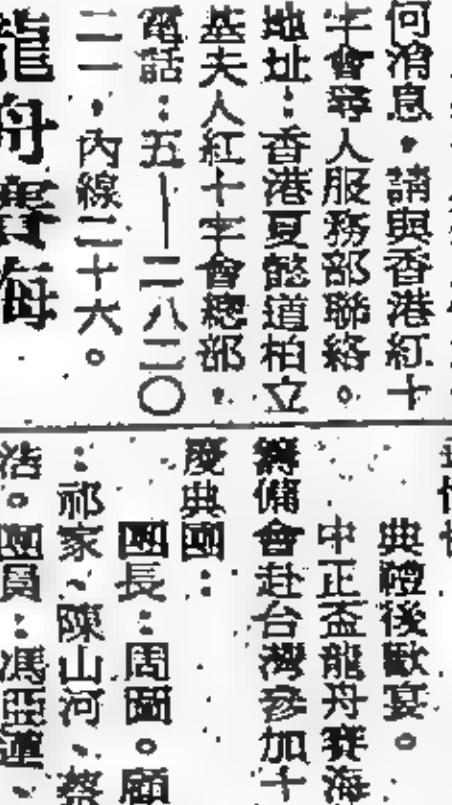 何消息，請與香港紅十
字會尋人服務部聯絡。
地址：香港夏慤道柏立
基夫人紅十字會總部，
電話：五—二八二〇
二二一，內線二十六。
龍舟賽海
典禮後歡宴。
中正盃龍舟賽海
籌備會赴台灣參加十
慶典團：
團長：周圖。顧
：祁家、陳山河、蔡
浩。團員：馮亞蓮、